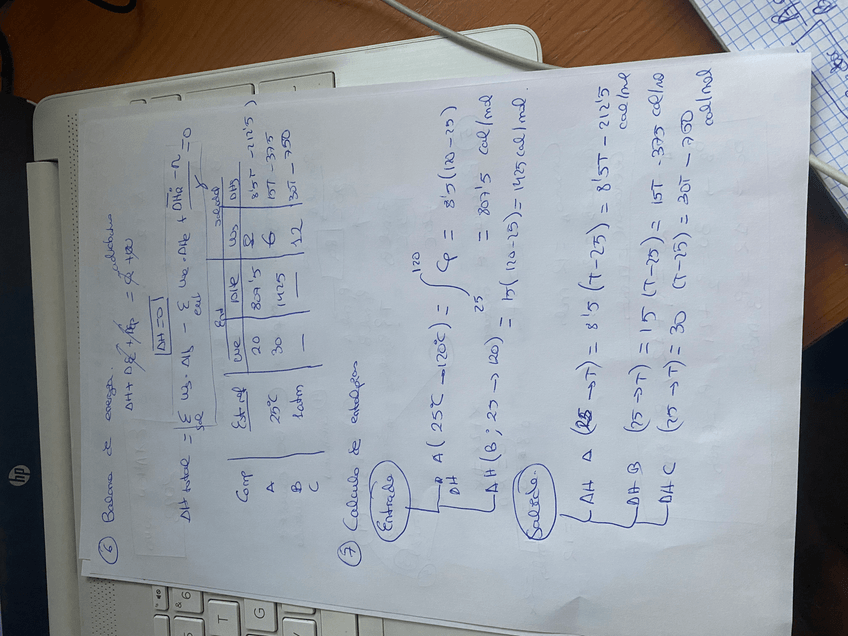 ⑥ Balance de energía.
ΔH + ΔEc + ΔEp = Q + W
ΔH = 0
ΔH total = Σ ns · ΔHs − Σ ne · ΔHe + ΔHR · n = 0
sal ent
Ent salida
Comp Est ref ne ΔHe ns ΔHs
A 25°C 20 807'5 8 8'5T − 212'5)
B 1 atm 30 1425 6 15T − 375
C — — 12 30T − 750
⑦ Calculo de entalpias
Entrada
ΔH A (25°C → 120°C) = ∫ 25 120 Cp = 8'5 (120 − 25)
= 807'5 cal/mol
ΔH (B; 25 → 120) = 15 (120 − 25) = 1425 cal/mol.
Salida.
ΔH A (25 → T) = 8'5 (T − 25) = 8'5T − 212'5
cal/mol
ΔH B (25 → T) = 15 (T − 25) = 15T − 375 cal/mol
ΔH C (25 → T) = 30 (T − 25) = 30T − 750
cal/mol
hp
6
&
T
G
Y